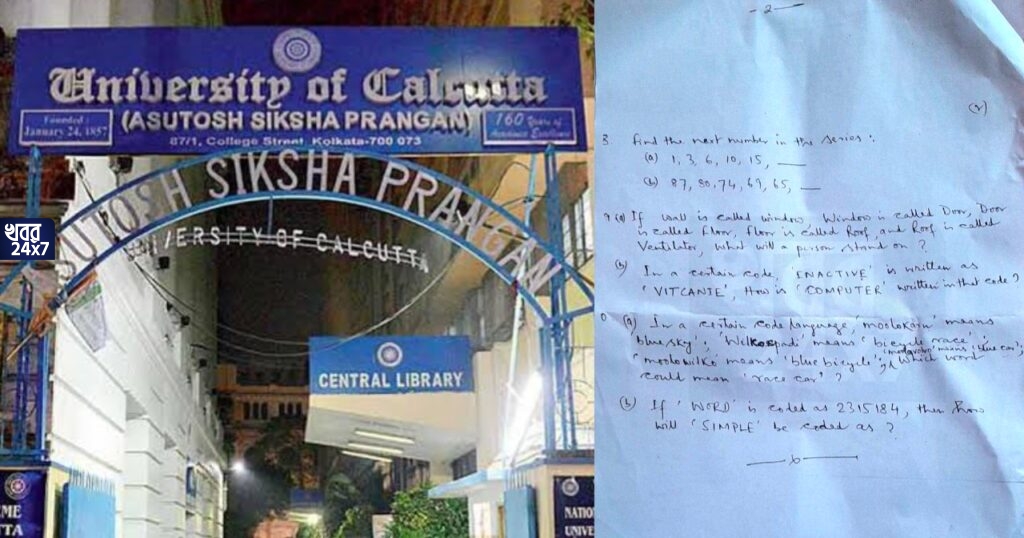 University of Calcutta
(ASUTOSH SIKSHA PRANGAN)
Founded :
January 24, 1857
160 Years of
Academic Excellence
87/1, College Street, Kolkata-700 073
ASUTOSH SIKSHA PRANGAN
UNIVERSITY OF CALCUTTA
খবর
24x7
CENTRAL LIBRARY
ME
TTA
NATIO
UNIVER
- 2 -
(2)
8. Find the next number in the series :
(a) 1, 3, 6, 10, 15, ___
(b) 87, 80, 74, 69, 65, ___
9 (a) If wall is called window, Window is called Door, Door
is called Floor, Floor is called Roof, and Roof is called
Ventilator, what will a person stand on ?
(b) In a certain code, 'INACTIVE' is written as
'VITCANIE', How is 'COMPUTER' written in that code ?
0 (a) In a certain code language, 'moolokarn' means
blue sky', 'Wilkospadi' means 'bicycle race',
'moolowilko means 'blue bicycle', means 'blue car', Which word
could mean 'race car' ?
(b) If 'WORD' is coded as 2315184, then how
will 'SIMPLE' be coded as ?
— x —